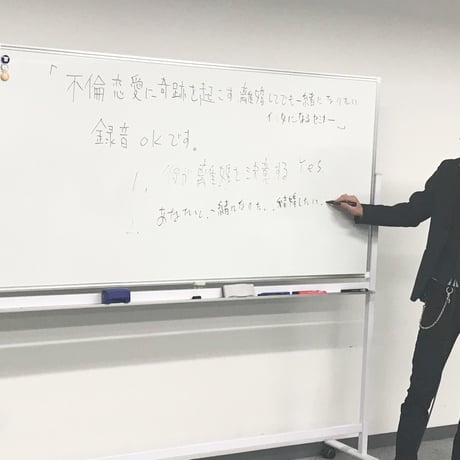 「不倫恋愛に奇跡を起こす離婚してでも一緒になりたい
イイ女になるセミナー」
録音okです。
彼が離婚を決意する Yes.
あなたと、一緒になりたい、結婚したい、